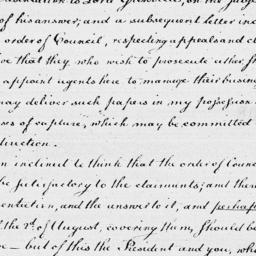 to Lord Grenville, on the subj
of his answer; and a subsequent letter inc
order of Council, respecting appeals and cl
ve that they who wish to prosecute either sh
appoint agents here to manage their busine
may deliver such papers in my possession
ses of capture, which may be committed
direction.
m inclined to think that the order of Counc
be satisfactory to the claimants; and then
sentation, and the answer to it, and perhaps
f the 2d. of August, covering them, should be
e — but of this the President and you, wh